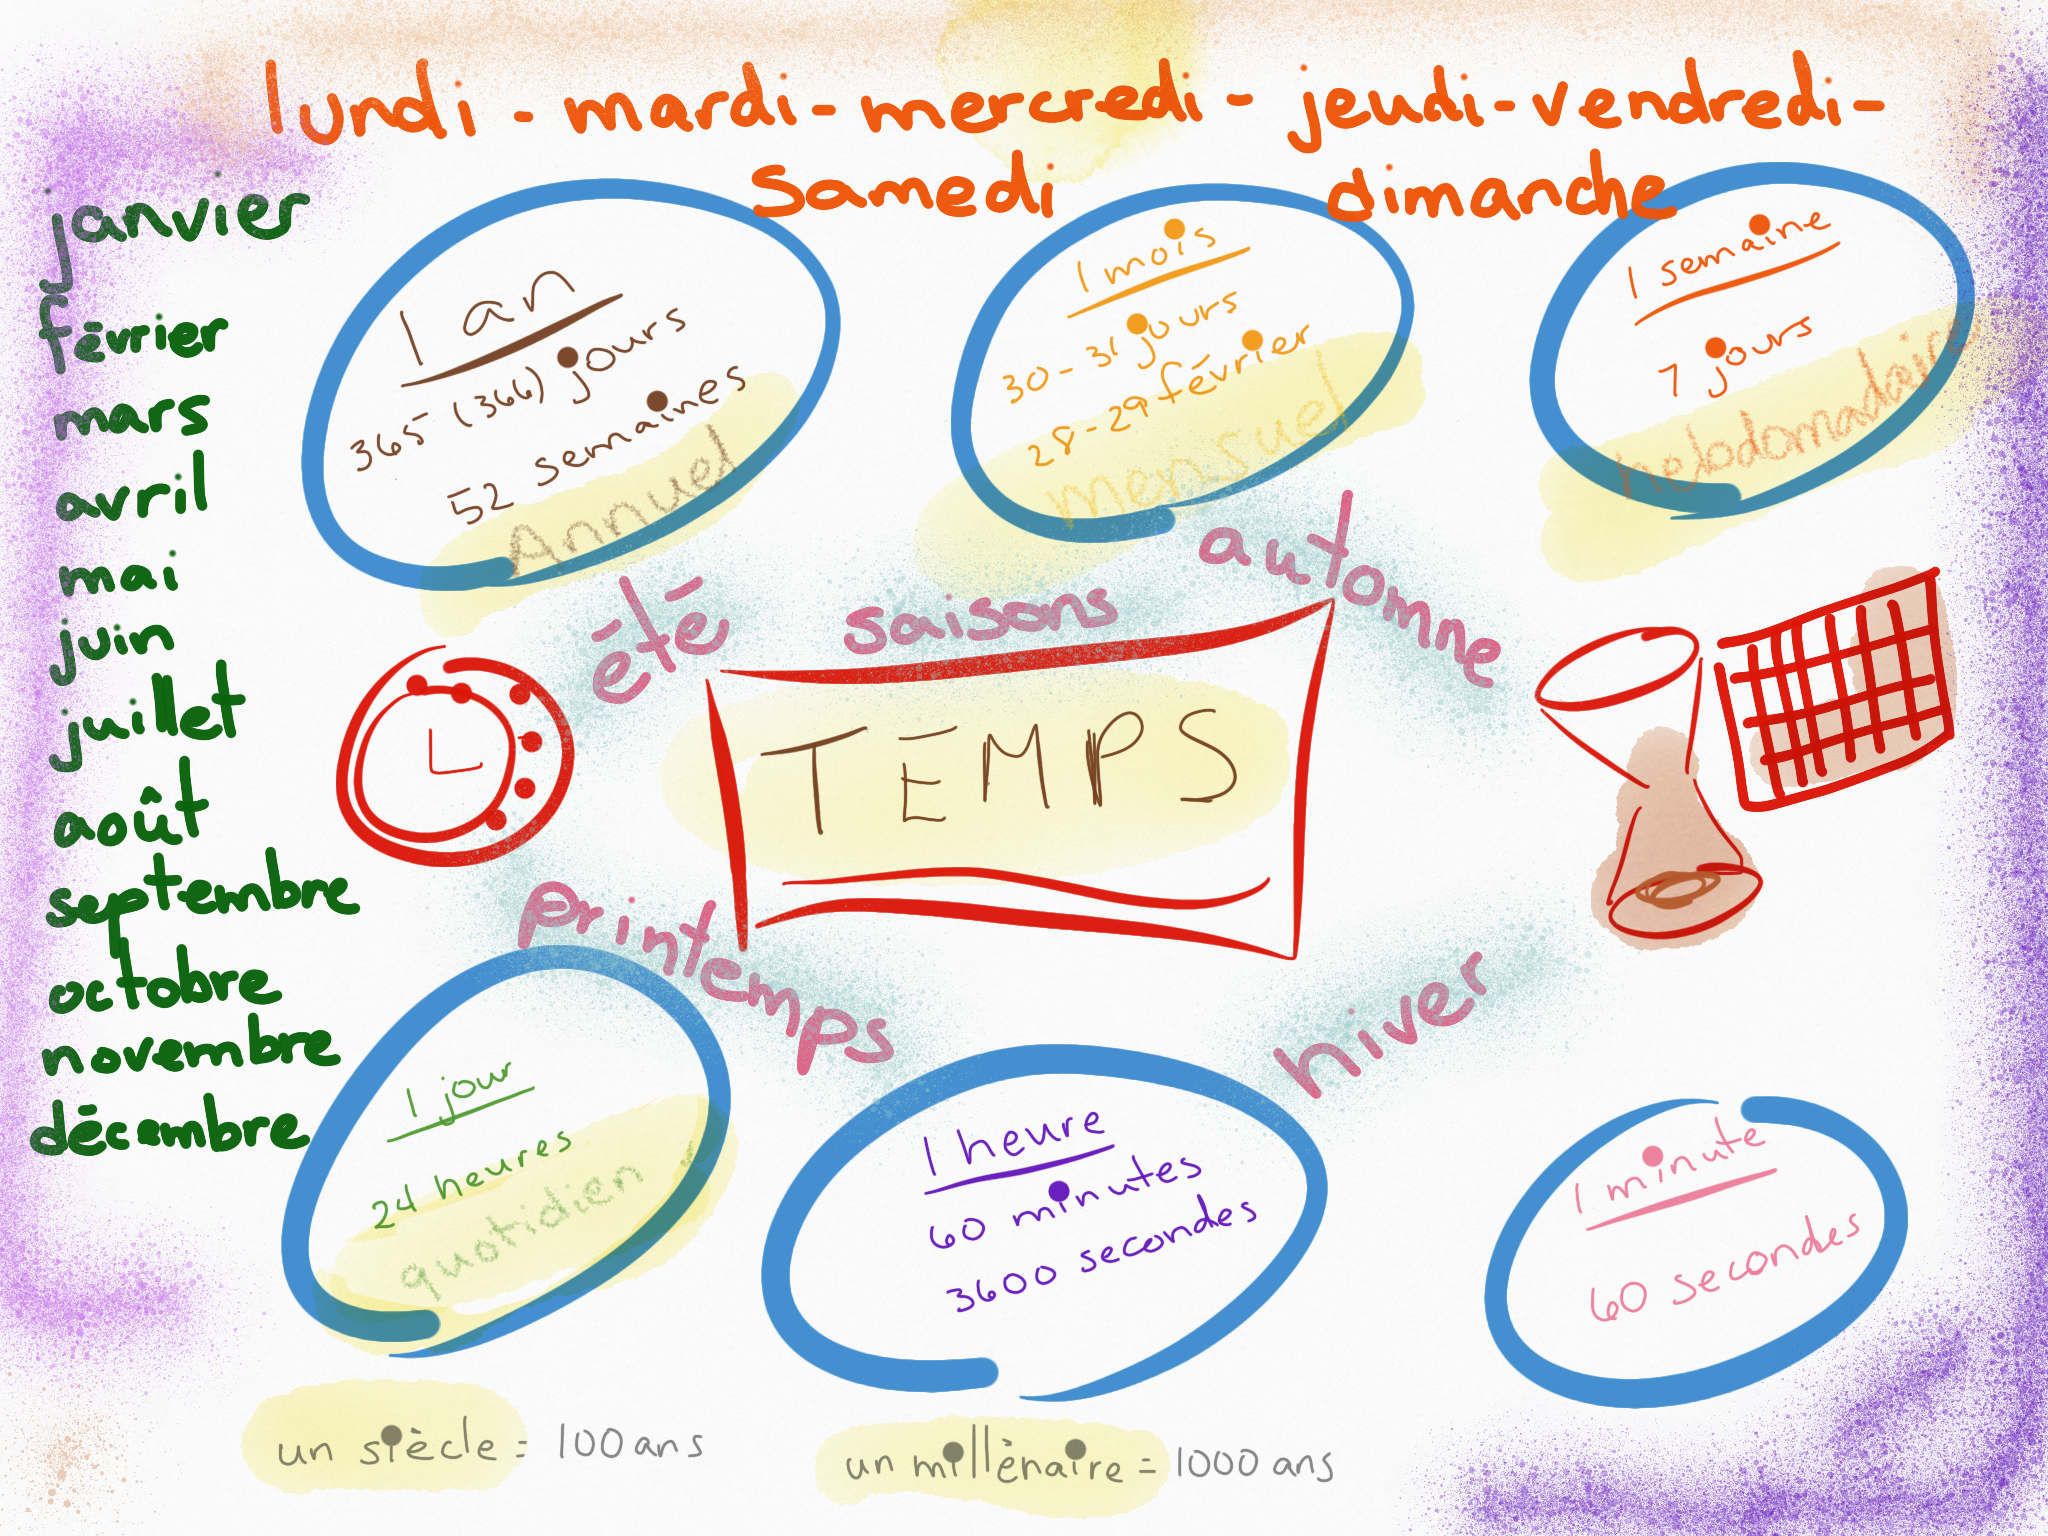 lundi - mardi - mercredi - jeudi - vendredi -
samedi dimanche
janvier
février
mars
avril
mai
juin
juillet
août
septembre
octobre
novembre
décembre
1 an
365 (366) jours
52 semaines
Annuel
1 mois
30 - 31 jours
28 - 29 février
mensuel
1 semaine
7 jours
hebdomadaire
été
saisons
automne
TEMPS
printemps
hiver
1 jour
24 heures
quotidien
1 heure
60 minutes
3600 secondes
1 minute
60 secondes
un siècle = 100 ans
un millénaire = 1000 ans